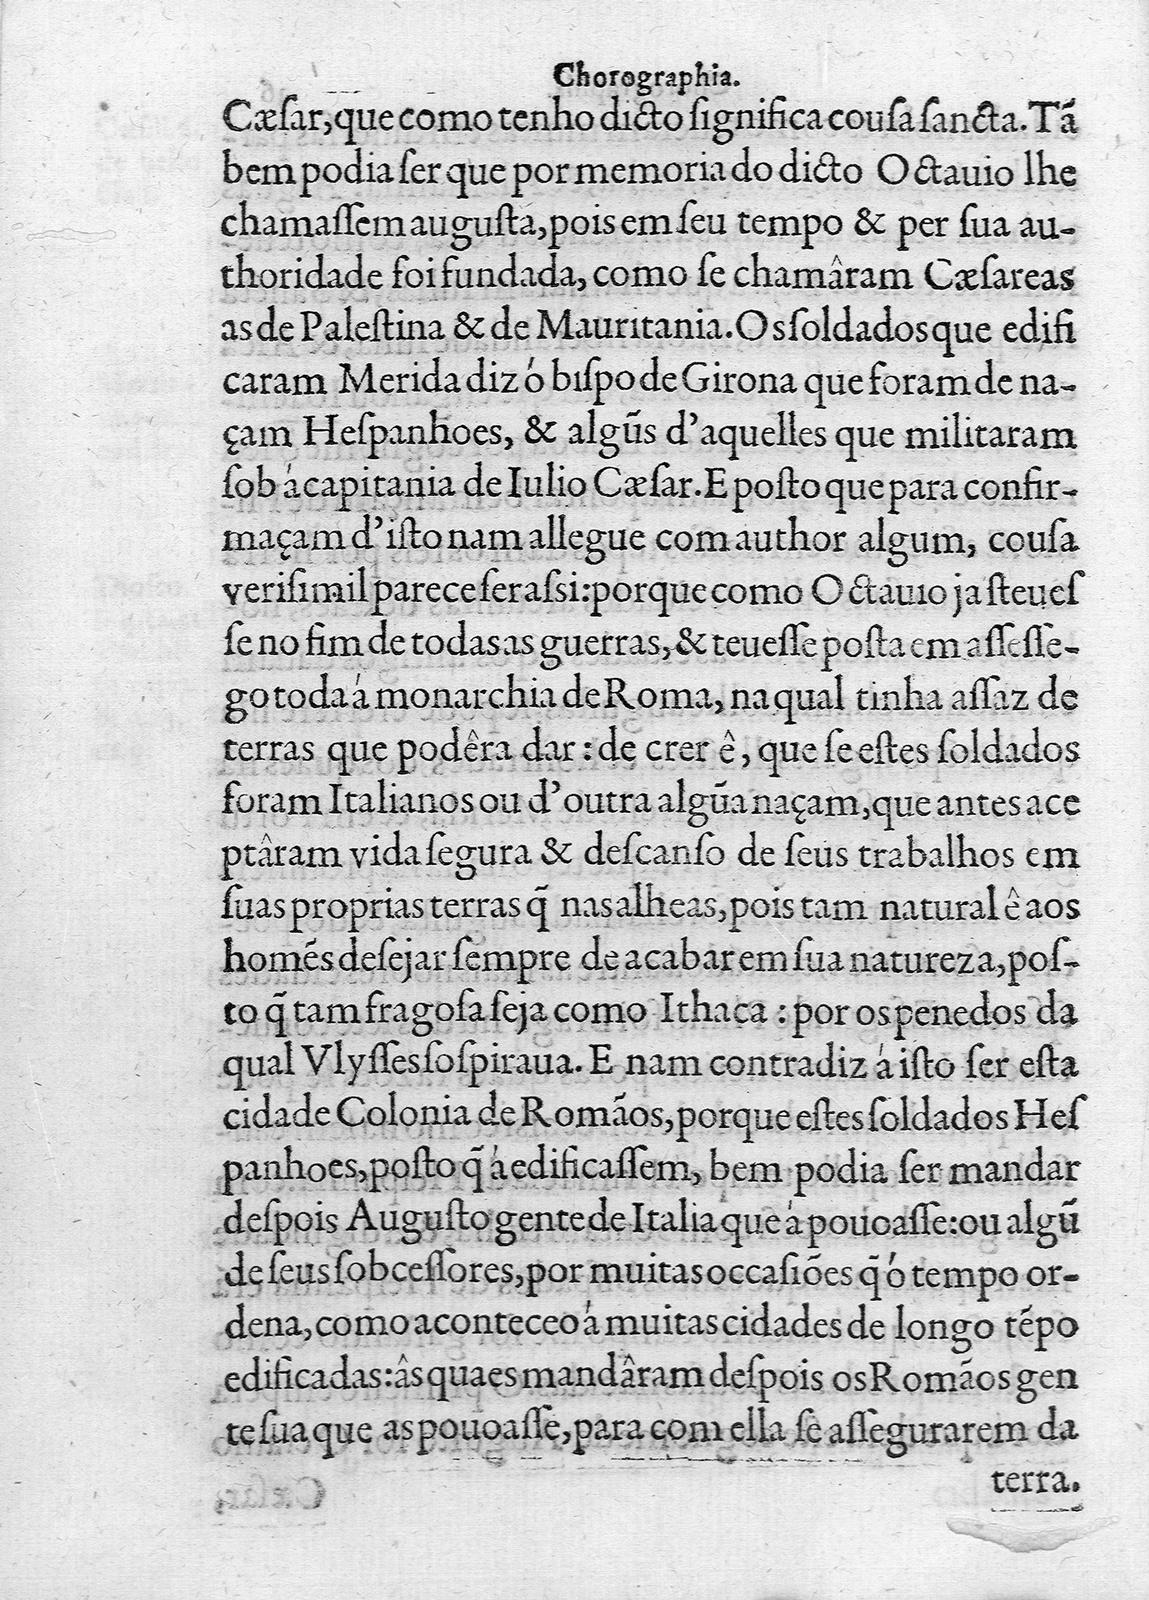 Chorographia.
Cæſar, que como tenho dicto ſignifica couſa ſancta. Tã
bem podia ſer que por memoria do dicto Octauio lhe
chamaſſem auguſta, pois em ſeu tempo & per ſua au-
thoridade foi fundada, como ſe chamâram Cæſareas
as de Paleſtina & de Mauritania. Os ſoldados que edifi
caram Merida diz ó biſpo de Girona que foram de na-
çam Heſpanhoes, & algũs d'aquelles que militaram
ſob á capitania de Iulio Cæſar. E poſto que para confir-
maçam d'iſto nam allegue com author algum, couſa
veriſimil parece ſer aſsi: porque como Octauio ja ſteueſ
ſe no fim de todas as guerras, & teueſſe poſta em aſſeſſe-
go toda á monarchia de Roma, na qual tinha aſſaz de
terras que podêra dar : de crer ê, que ſe eſtes ſoldados
foram Italianos ou d'outra algũa naçam, que antes ace
ptâram vida ſegura & deſcanſo de ſeus trabalhos em
ſuas proprias terras q̃ nas alheas, pois tam natural ê aos
homẽs deſejar ſempre de acabar em ſua natureza, poſ-
to q̃ tam fragoſa ſeja como Ithaca : por os penedos da
qual Vlyſſes ſoſpiraua. E nam contradiz á iſto ſer eſta
cidade Colonia de Romãos, porque eſtes ſoldados Heſ
panhoes, poſto q̃ á edificaſſem, bem podia ſer mandar
deſpois Auguſto gente de Italia que á pouoaſſe: ou algũ
de ſeus ſobceſſores, por muitas occaſiões q̃ ó tempo or-
dena, como aconteceo á muitas cidades de longo tẽpo
edificadas: âs quaes mandâram deſpois os Romãos gen
te ſua que as pouoaſſe, para com ella ſe aſſegurarem da
terra.